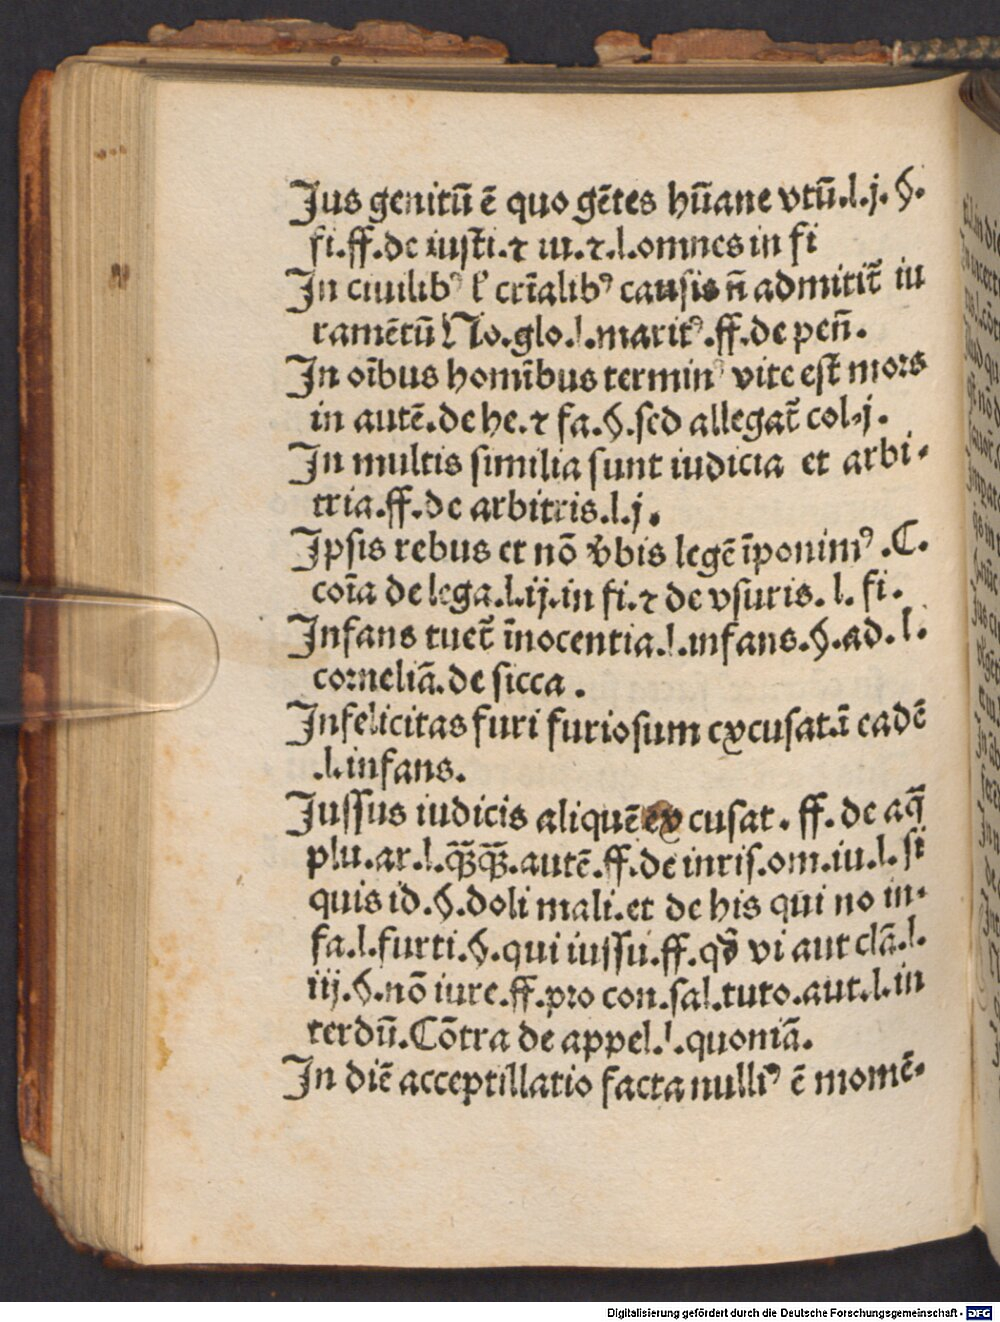 Jus genitū ē quo gētes hūane vtū.l.j.§.
fi.ff.de iusti.⁊ iu.⁊.l.omnes in fi
In ciuilibꝰ ł cr̄ialibꝰ causis n̄ admitit̄ iu
ramētū No.glo.l.maritꝰ.ff.de pen̄.
In oībus homībus terminꝰ vite est mors
in autē.de he.⁊ fa.§.sed allegat̄ col.j.
In multis similia sunt iudicia et arbi-
tria.ff.de arbitris.l.j.
Ipsis rebus et nō v̄bis legē īponimꝰ.C.
coīa de lega.l.ij.in fi.⁊ de vsuris.l.fi.
Infans tuet̄ īnocentia.l.infans.§.ad.l.
corneliā.de sicca.
Infelicitas furi furiosum excusat.ī eadē
.l.infans.
Jussus iudicis aliquē excusat. ff. de aq̄
plu.ar.l.q̄q̄.autē.ff.de inris.om.iu.l.si
quis id.§.doli mali.et de his qui no in-
fa.l.furti.§.qui iussu.ff.qḋ vi aut clā.l.
iij.§.nō iure.ff.pro con.sal.tuto.aut.l.in
terdū.Cōtra de appel.l.quoniā.
In diē acceptillatio facta nulliꝰ ē momē-
Digitalisierung gefördert durch die Deutsche Forschungsgemeinschaft - DFG